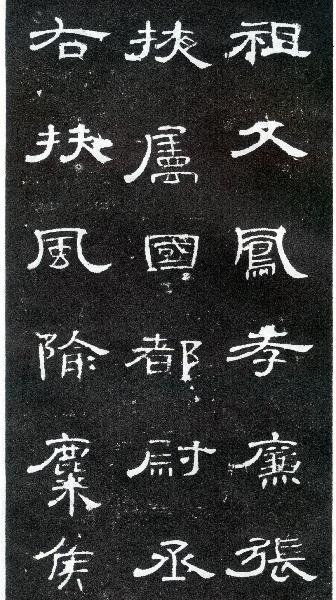 祖父鳳孝廉張
掖屬國都尉丞
右扶風隃糜侯